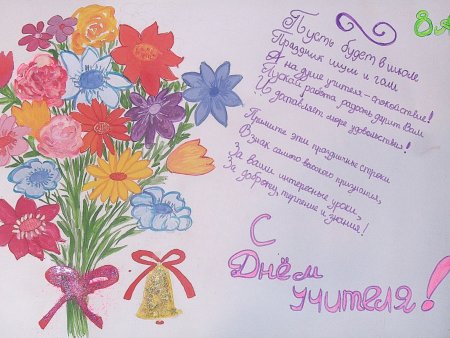 8 А
Пусть будет в школе
Праздник шум и гам
А на душе учителя - спокойствие!
Пускай работа радость дарит вам
И доставляет море удовольствия!
Примите эти праздничные строки
В знак самого высокого признания,
За ваши интересные уроки,
За доброту, терпение и знания!
С
Днём
учителя!